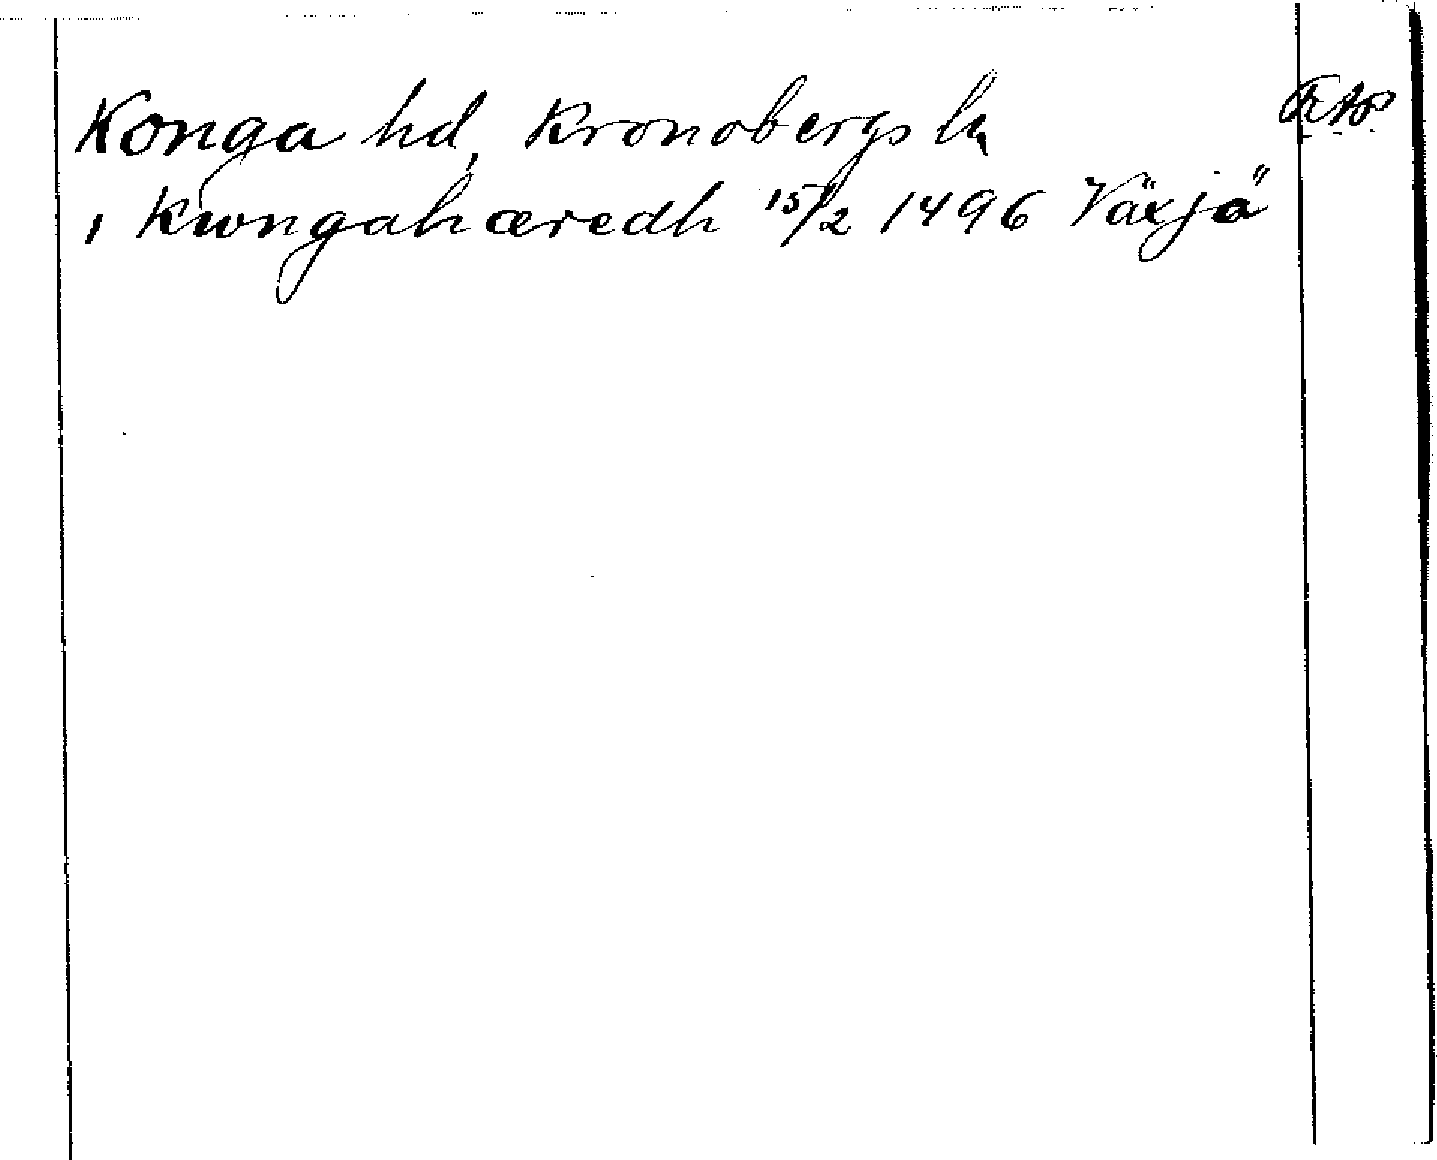 Konga hd, Kronobergs ln RAP
i Kwngahæredh 15/2 1496 Växjö